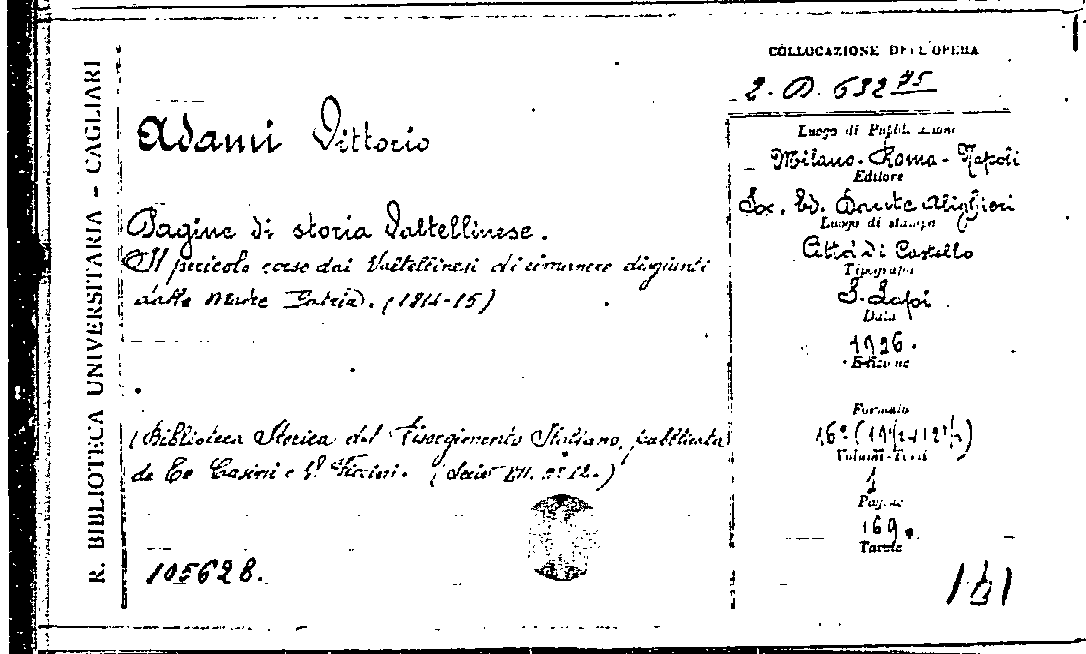 R. BIBLIOTECA UNIVERSITARIA - CAGLIARI
COLLOCAZIONE DELL'OPERA
2. D. 632 75
Adami Vittorio
Pagine di storia Valtellinese.
Il pericolo corso dai Valtellinesi di rimanere digiunti
dalla Madre Patria. (1814-15)
(Biblioteca Storica del Risorgimento Italiano, pubblicata
da Casini e Fiorini. (Serie VII. n° 12.)
105628.
Luogo di Pubblicazione
Milano - Roma - Napoli
Editore
Soc. Ed. Dante Alighieri
Luogo di stampa
Città di Castello
Tipografia
S. Lapi
Data
1926.
Edizione
Formato
16° (19½ x 12½)
Volumi-Tomi
1
Pagine
169.
Tavole